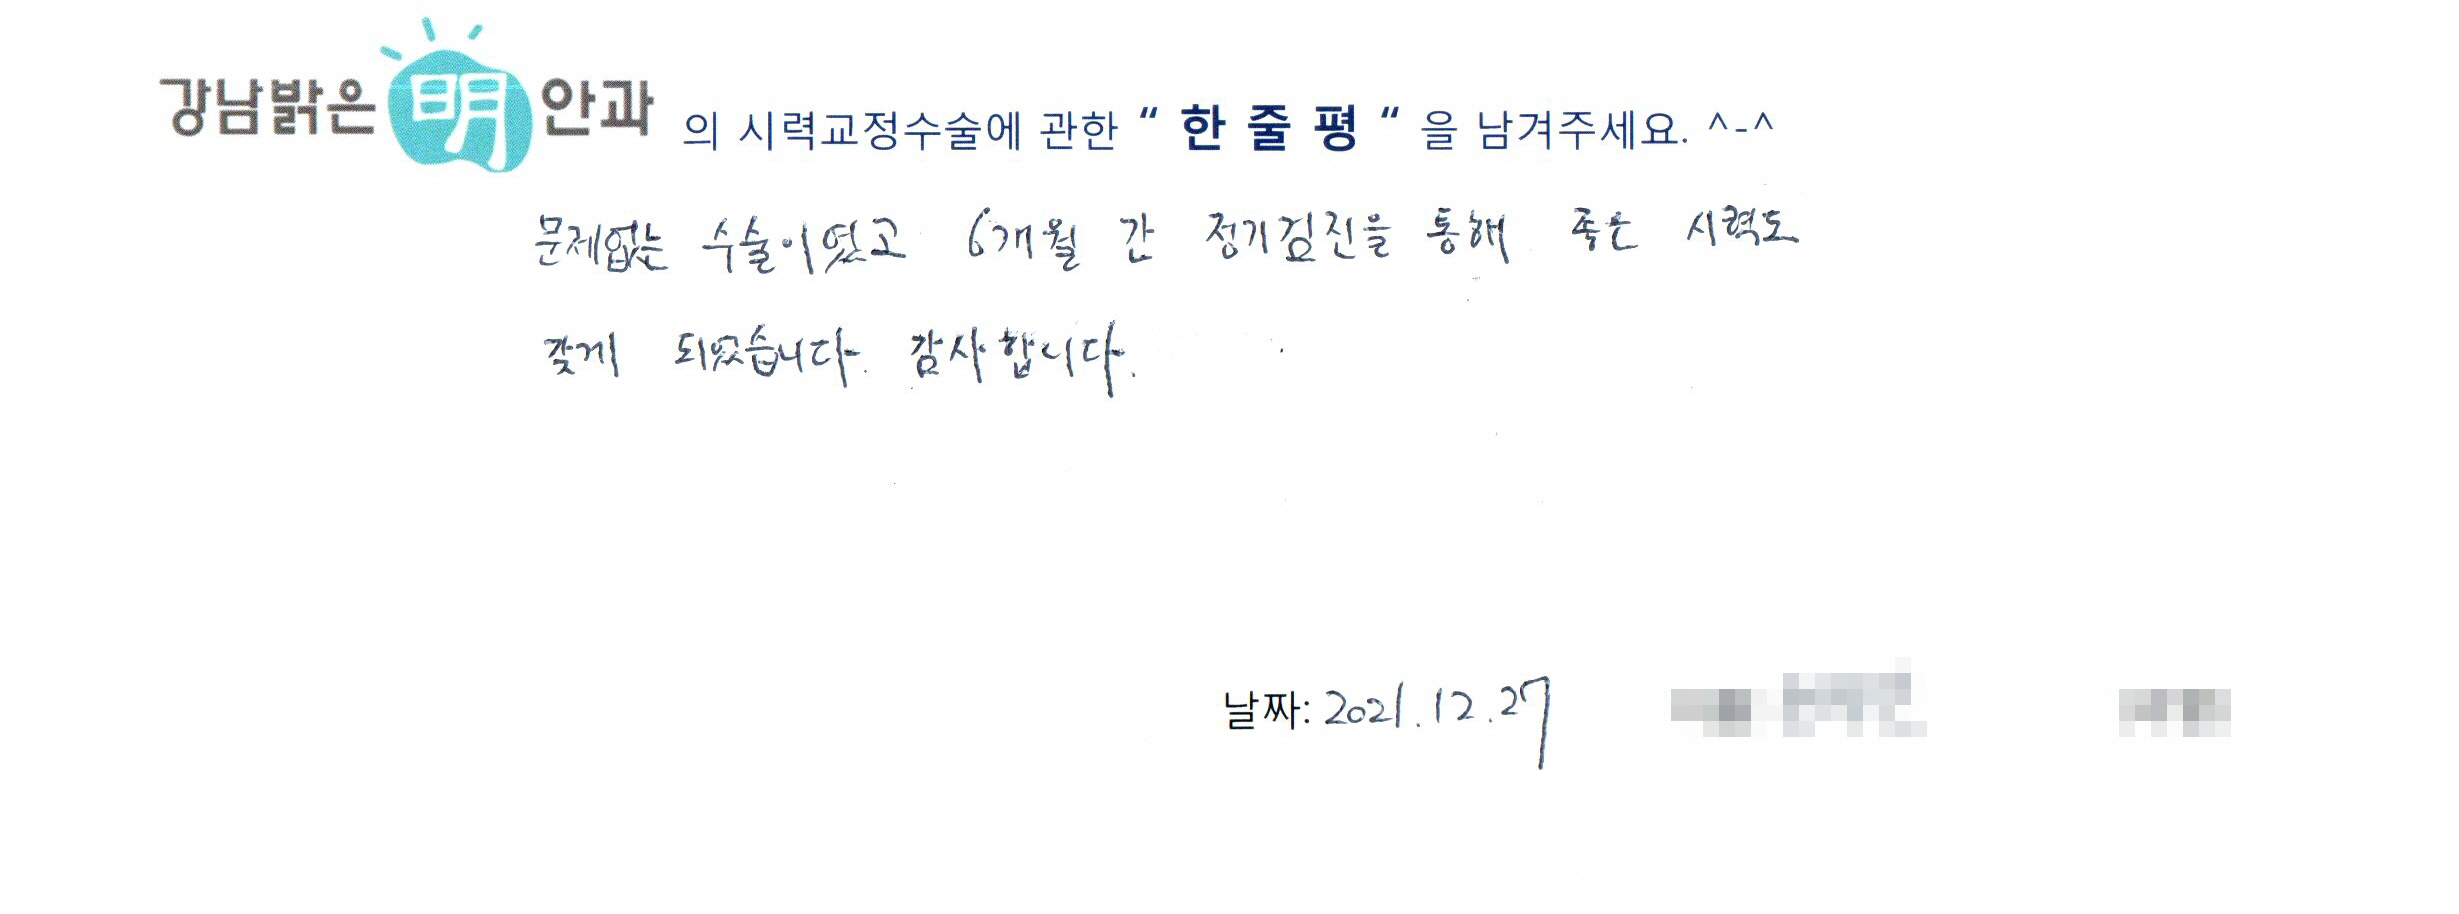 강남밝은 明 안과 의 시력교정수술에 관한 “ 한 줄 평 “ 을 남겨주세요. ^-^
문제없는 수술이였고 6개월 간 정기검진을 통해 좋은 시력도
갖게 되었습니다. 감사합니다.
날짜: 2021.12.27